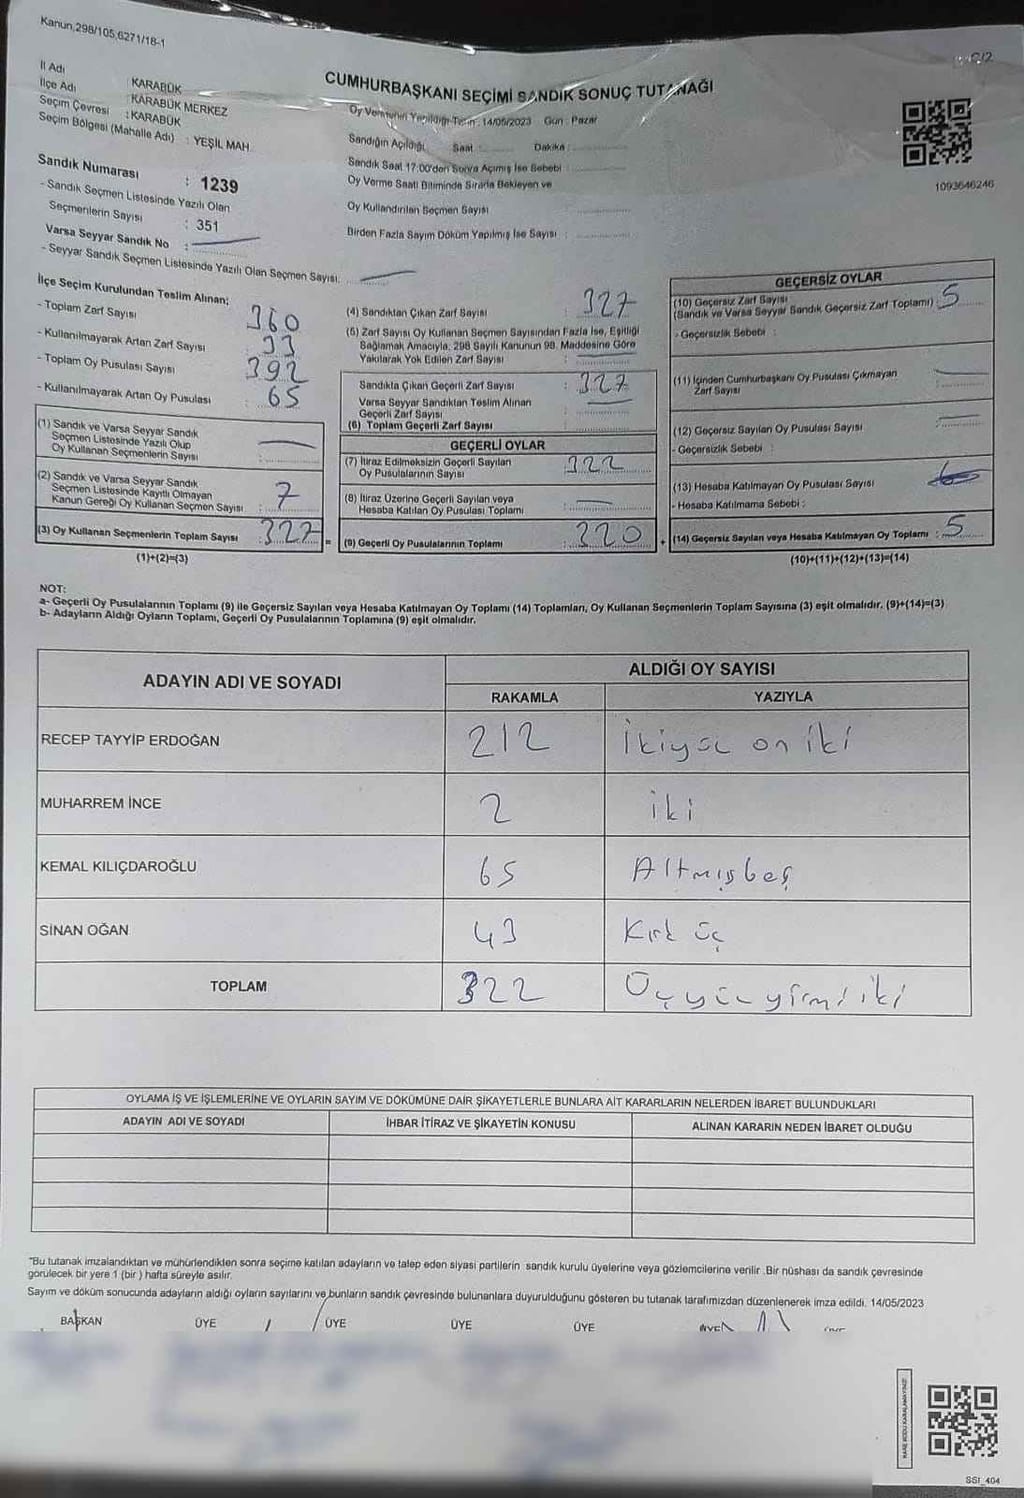 Kanun,298/105,6271/18-1
İl Adı : KARABÜK
İlçe Adı : KARABÜK MERKEZ
Seçim Çevresi : KARABÜK
Seçim Bölgesi (Mahalle Adı) : YEŞİL MAH.
Sandık Numarası : 1239
- Sandık Seçmen Listesinde Yazılı Olan
Seçmenlerin Sayısı : 351
Varsa Seyyar Sandık No :
- Seyyar Sandık Seçmen Listesinde Yazılı Olan Seçmen Sayısı:
CUMHURBAŞKANI SEÇİMİ SANDIK SONUÇ TUTANAĞI
Oy Vermenin Yapıldığı Tarih : 14/05/2023 Gün : Pazar
Sandığın Açıldığı Saat : Dakika :
Sandık Saat 17:00'den Sonra Açımış İse Sebebi :
Oy Verme Saati Bitiminde Sırada Bekleyen ve
Oy Kullandırılan Seçmen Sayısı
Birden Fazla Sayım Döküm Yapılmış İse Sayısı :
1093646246
İlçe Seçim Kurulundan Teslim Alınan;
- Toplam Zarf Sayısı 360
- Kullanılmayarak Artan Zarf Sayısı 33
- Toplam Oy Pusulası Sayısı 392
- Kullanılmayarak Artan Oy Pusulası 65
(1) Sandık ve Varsa Seyyar Sandık
Seçmen Listesinde Yazılı Olup
Oy Kullanan Seçmenlerin Sayısı
(2) Sandık ve Varsa Seyyar Sandık
Seçmen Listesinde Kayıtlı Olmayan
Kanun Gereği Oy Kullanan Seçmen Sayısı : 7
(3) Oy Kullanan Seçmenlerin Toplam Sayısı : 327 =
(1)+(2)=(3)
(4) Sandıktan Çıkan Zarf Sayısı : 327
(5) Zarf Sayısı Oy Kullanan Seçmen Sayısından Fazla İse, Eşitliği
Sağlamak Amacıyla, 298 Sayılı Kanunun 98. Maddesine Göre
Yakılarak Yok Edilen Zarf Sayısı :
Sandıkta Çıkan Geçerli Zarf Sayısı : 327
Varsa Seyyar Sandıktan Teslim Alınan
Geçerli Zarf Sayısı
(6) Toplam Geçerli Zarf Sayısı
GEÇERLİ OYLAR
(7) İtiraz Edilmeksizin Geçerli Sayılan
Oy Pusulalarının Sayısı 322
(8) İtiraz Üzerine Geçerli Sayılan veya
Hesaba Katılan Oy Pusulası Toplamı
(9) Geçerli Oy Pusulalarının Toplamı 320 +
GEÇERSİZ OYLAR
(10) Geçersiz Zarf Sayısı
(Sandık ve Varsa Seyyar Sandık Geçersiz Zarf Toplamı) : 5
- Geçersizlik Sebebi :
(11) İçinden Cumhurbaşkanı Oy Pusulası Çıkmayan
Zarf Sayısı
(12) Geçersiz Sayılan Oy Pusulası Sayısı
- Geçersizlik Sebebi :
(13) Hesaba Katılmayan Oy Pusulası Sayısı
- Hesaba Katılmama Sebebi :
(14) Geçersiz Sayılan veya Hesaba Katılmayan Oy Toplamı : 5
(10)+(11)+(12)+(13)=(14)
NOT:
a- Geçerli Oy Pusulalarının Toplamı (9) ile Geçersiz Sayılan veya Hesaba Katılmayan Oy Toplamı (14) Toplamları, Oy Kullanan Seçmenlerin Toplam Sayısına (3) eşit olmalıdır. (9)+(14)=(3)
b- Adayların Aldığı Oyların Toplamı, Geçerli Oy Pusulalarının Toplamına (9) eşit olmalıdır.
ADAYIN ADI VE SOYADI ALDIĞI OY SAYISI
RAKAMLA YAZIYLA
RECEP TAYYİP ERDOĞAN 212 İkiyüz on iki
MUHARREM İNCE 2 iki
KEMAL KILIÇDAROĞLU 65 Altmışbeş
SİNAN OĞAN 43 Kırk üç
TOPLAM 322 Üçyüz yirmi iki
OYLAMA İŞ VE İŞLEMLERİNE VE OYLARIN SAYIM VE DÖKÜMÜNE DAİR ŞİKAYETLERLE BUNLARA AİT KARARLARIN NELERDEN İBARET BULUNDUKLARI
ADAYIN ADI VE SOYADI İHBAR İTİRAZ VE ŞİKAYETİN KONUSU ALINAN KARARIN NEDEN İBARET OLDUĞU
"Bu tutanak imzalandıktan ve mühürlendikten sonra seçime katılan adayların ve talep eden siyasi partilerin sandık kurulu üyelerine veya gözlemcilerine verilir .Bir nüshası da sandık çevresinde
görülecek bir yere 1 (bir ) hafta süreyle asılır.
Sayım ve döküm sonucunda adayların aldığı oyların sayılarını ve bunların sandık çevresinde bulunanlara duyurulduğunu gösteren bu tutanak tarafımızdan düzenlenerek imza edildi. 14/05/2023
BAŞKAN ÜYE ÜYE ÜYE ÜYE
KARE KODU KARALAMAYINIZ!
SSI_404